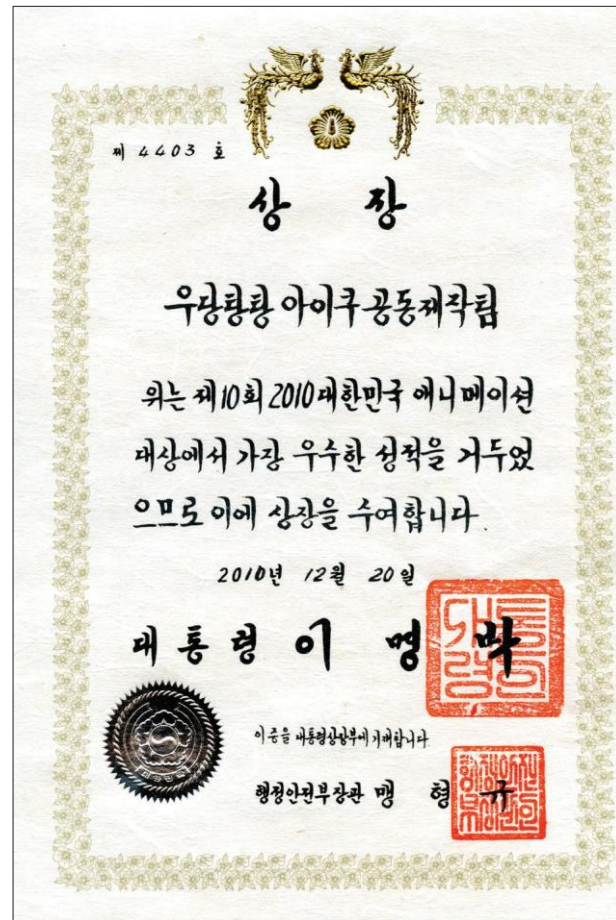 제 4403 호
상 장
우당탕탕 아이쿠 공동제작팀
위는 제10회 2010 대한민국 애니메이션
대상에서 가장 우수한 성적을 거두었
으므로 이에 상장을 수여합니다.
2010년 12월 20일
대통령 이명박
이 증을 대통령상장부에 기재합니다.
행정안전부장관 맹형규